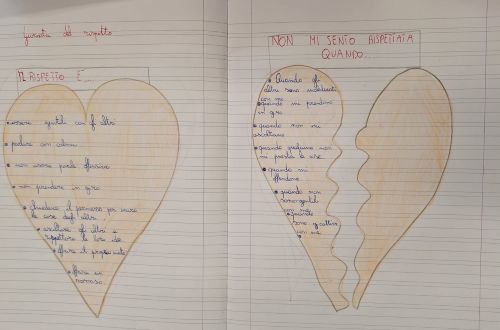 Giornata del rispetto
IL RISPETTO È...
essere gentili con gli altri
parlare con calma
non usare parole offensive
non prendere in giro
chiedere il permesso per usare
le cose degli altri
ascoltare gli altri e
rispettare le loro idee
offrire un
NON MI SENTO RISPETTATA
QUANDO...
Quando gli
altri sono maleducati
con me
quando mi prendono
in giro
quando non mi
ascoltano
quando qualcuno non
mi presta le cose
quando mi
offendono
quando non
sono gentili
con me
quando
sono cattivi
con me